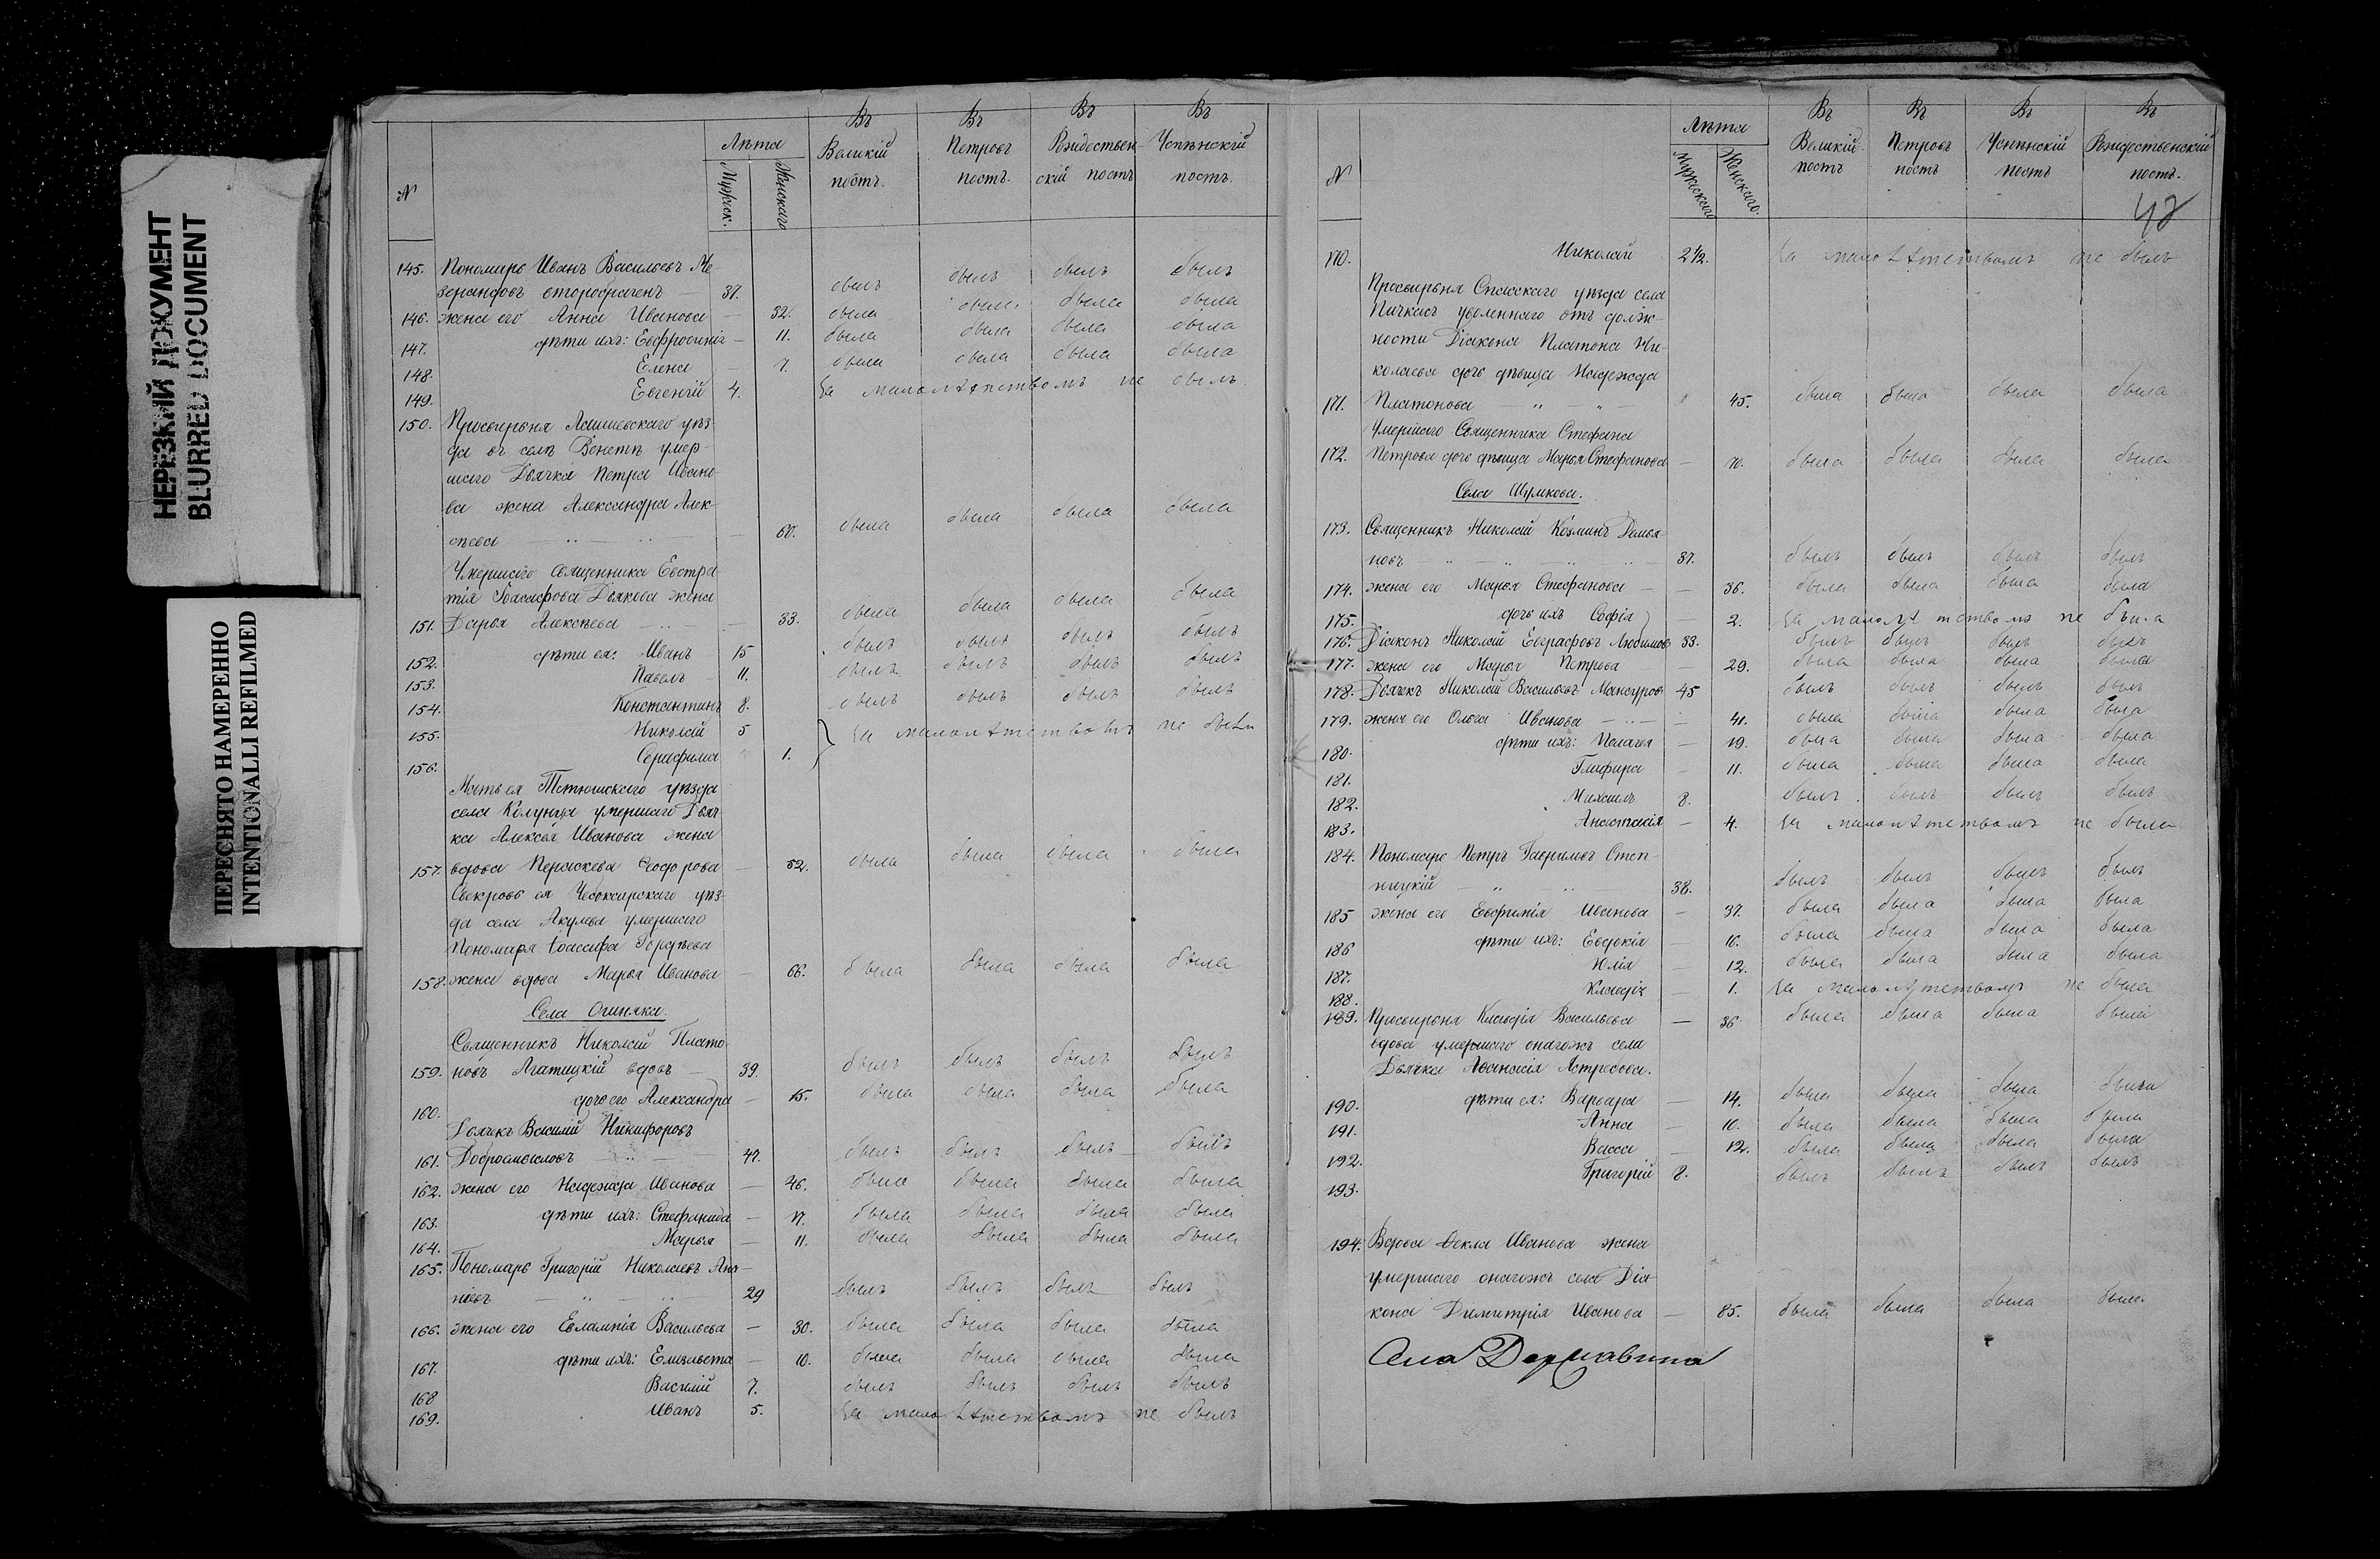 НЕРЕЗКИЙ ДОКУМЕНТ
BLURRED DOCUMENT
ПЕРЕСНЯТО НАМЕРЕННО
INTENTIONALLI REFILMED
№ Лѣта Мужеск. Женскаго Въ Великій постъ. Въ Петровъ постъ. Въ Рождественскій постъ Въ Успѣнскій постъ.
145. Пономарь Иванъ Васильевъ Ме-
зерандовъ второбраченъ — 37. былъ былъ былъ былъ
146. жена его Анна Иванова — 32. была была была была
147. дѣти ихъ: Евфросинія — 11. была была была была
148. Елена — 7. была была была была
149. Евгеній 4. За малолѣтствомъ не былъ.
150. Просвирьня Лаишевскаго уѣз-
да въ селѣ Венетѣ умер-
шаго Дьячка Петра Ивано
ва жена Александра Алек-
сѣева — 60. была была была была
Умершаго священника Евстра
тія Іоасафова Дьякова жена
151. Дарья Алексѣева — 33. была была была была
152. дѣти ея: Иванъ — 15 былъ былъ былъ былъ
153. Павелъ — 11. былъ былъ былъ былъ
154. Константинъ 8. былъ былъ былъ былъ
155. Николай 5 За малолѣтствомъ не были
156. Серафима 1.
Мать ея Тетюшскаго уѣзда
села Колунца умершаго Дьяч-
ка Алексѣя Иванова жена
157. вдова Пераскева Ѳеодорова — 52. была была была была
Свекровь ея Чебоксарскаго уѣз-
да села Акулева умершаго
Пономаря Іоассафа Гордѣева
158. жена вдова Марья Иванова — 66. была была была была
Села Огиняка.
Священникъ Николай Плато-
159. новъ Агатицкій вдовъ — 39. былъ былъ былъ былъ
160. дочь его Александра — 15. была была была была
Дьячекъ Василій Никифоровъ
161. Добросмысловъ — 47. былъ былъ былъ былъ
162. жена его Надежда Иванова — 46. была была была была
163. дѣти ихъ: Стефанида — 17. была была была была
164. Марья — 11. была была была была
165. Пономарь Григорій Николаевъ Ана-
ньевъ — 29 былъ былъ былъ былъ
166. жена его Евлампія Васильева — 30. была была была была
167. дѣти ихъ: Елизавета — 10. была была была была
168 Василій 7. былъ былъ былъ былъ
169. Иванъ 5. За малолѣтствомъ не былъ
№ Лѣта Мужескаго Женскаго. Въ Великій постъ Въ Петровъ постъ Въ Успѣнскій постъ Въ Рождественскій постъ.
42
170. Николай 2½. За малолѣтствомъ не былъ
Просвирьня Спасскаго уѣзда села
Пичкасъ уволеннаго отъ долж-
ности Діакона Платона Ни-
колаева дочь дѣвица Надежда
171. Платонова — 45. была была была была
Умершаго Священника Стефана
172. Петрова дочь дѣвица Марья Стефанова — 70. была была была была
Села Шумкова.
173. Священникъ Николай Козминъ Демья-
новъ — 37. былъ былъ былъ былъ
174. жена его Марья Стефанова — 36. была была была была
175. дочь ихъ Софія — 2. За малолѣтствомъ не была
176. Діаконъ Николай Евграфовъ Любимовъ 33. былъ былъ былъ былъ
177. жена его Марья Петрова — 29. была была была была
178. Дьячекъ Николай Васильевъ Мансуровъ 45 былъ былъ былъ былъ
179. жена его Ольга Иванова — 41. была была была была
180. дѣти ихъ: Пелагея — 19. была была была была
181. Глафира — 11. была была была была
182. Михаилъ 8. былъ былъ былъ былъ
183. Анастасія — 4. За малолѣтствомъ не была
184. Пономарь Петръ Гавриловъ Степ-
ницкій — 38. былъ былъ былъ былъ
185 жена его Евфимія Иванова — 37. была была была была
186 дѣти ихъ: Евдокія — 16. была была была была
187. Юлія — 12. была была была была
188. Клавдія — 1. За малолѣтствомъ не была
189. Просвирьня Клавдія Васильева — 36. была была была была
вдова умершаго онагожъ села
Дьячка Аѳанасія Ястребова.
190. дѣти ея: Варвара — 14. была была была была
191. Анна — 10. была была была была
192. Васса — 12. была была была была
193. Григорій 8. былъ былъ былъ былъ
194. Вдова Ѳекла Иванова жена
умершаго онагожъ села Діа-
кона Димитрія Иванова — 85. была была была была
Села Державина